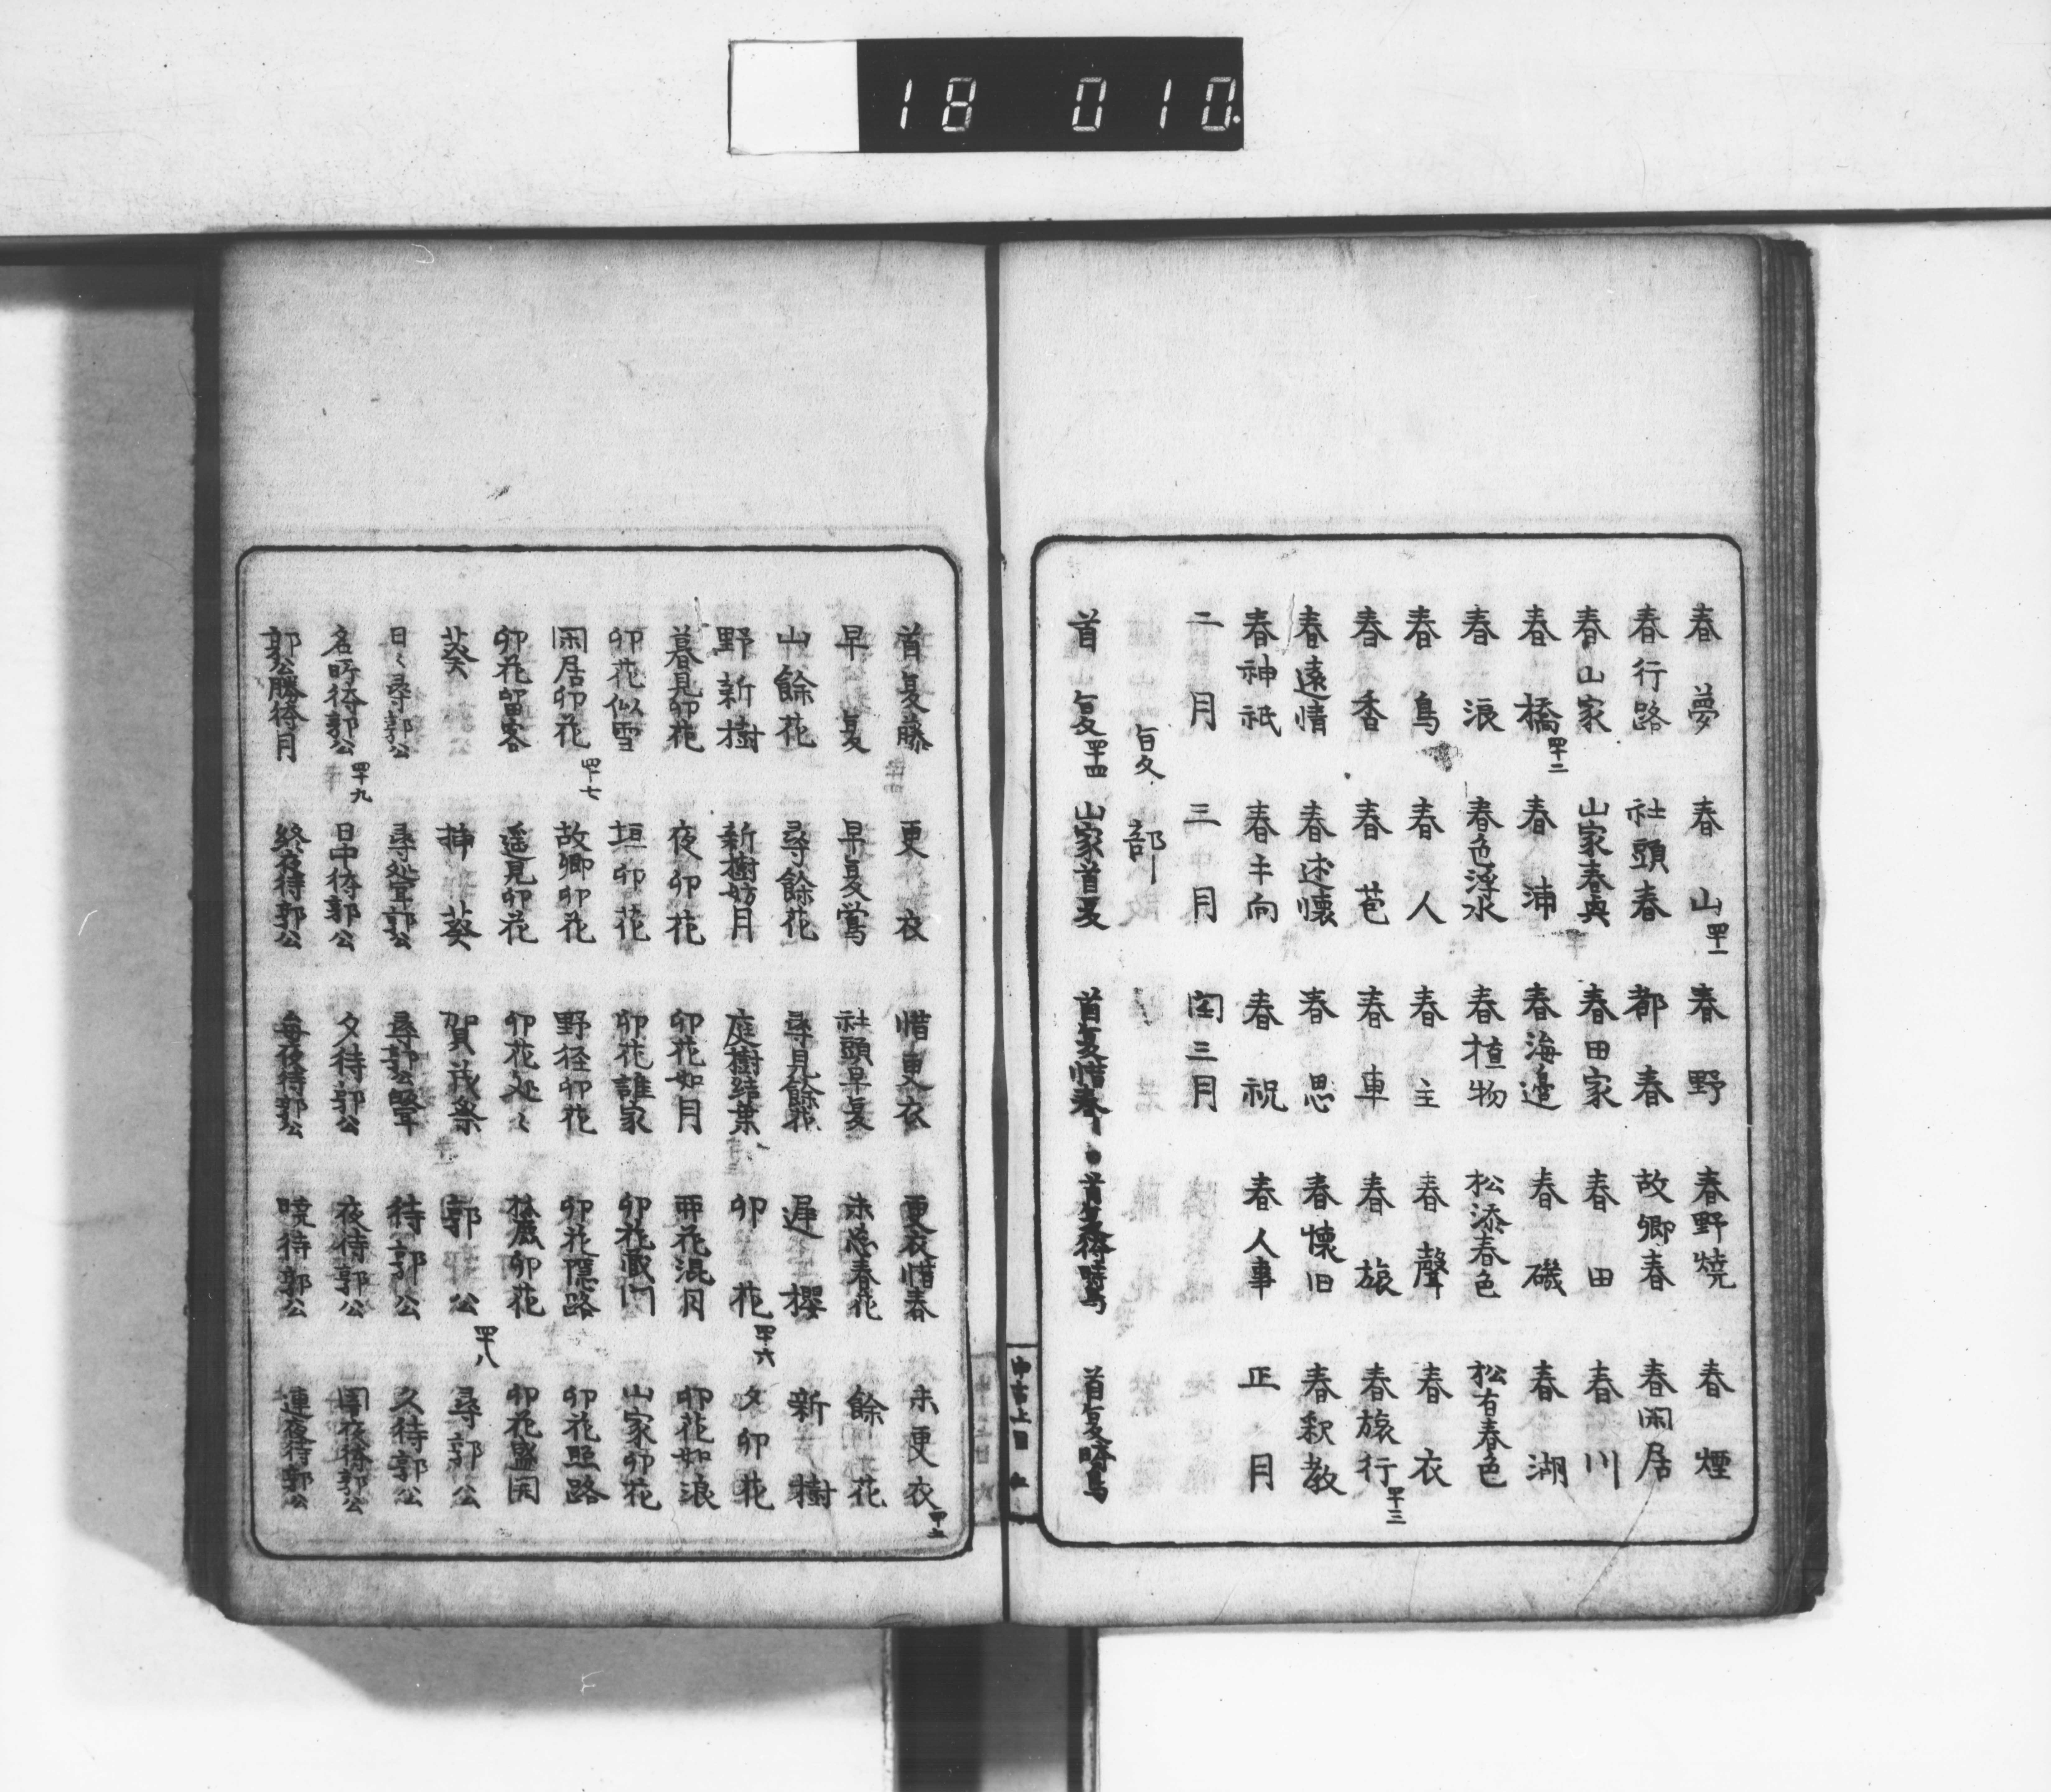 18 010.
春夢 春山 四十一 春野 春野焼 春煙
春行路 社頭春 都春 故郷春 春闲居
春山家 山家春興 春田家 春田 春川
春橋 四十二 春浦 春海邉 春磯 春湖
春浪 春色浮水 春植物 松添春色 松有春色
春鳥 春人 春主 春聲 春衣
春香 春苞 春車 春旅 春旅行 四十三
春遠情 春述懐 春思 春懐旧 春釈教
春神祇 春手向 春祝 春人事 正月
二月 三月 閏三月
夏 部
首夏 四十四 山家首夏 首夏惜春 首夏待時鳥 首夏時鳥
中古上目 九
首夏藤 更衣 惜更衣 更衣惜春 未更衣
早夏 早夏鶯 社頭早夏 未忘春花 餘花
山餘花 尋餘花 尋見餘花 遅櫻 新樹
野新樹 新樹妨月 庭樹結葉 卯花 四十六 夕卯花
暮見卯花 夜卯花 卯花如月 卯花混月 卯花如浪
卯花似雪 垣卯花 卯花誰家 卯花蔵門 山家卯花
闲居卯花 四十七 故郷卯花 野径卯花 卯花隠路 卯花照路
卯花留客 遥見卯花 卯花処〻 卯花 卯花盛開
葵 挿葵 賀茂祭 郭公 四十八 尋郭公
日〻尋郭公 尋郭公 待郭公 久待郭公
名所待郭公 四十九 日中待郭公 夕待郭公 夜待郭公 郭公
郭公勝待月 終夜待郭公 毎夜待郭公 暁待郭公 連夜待郭公